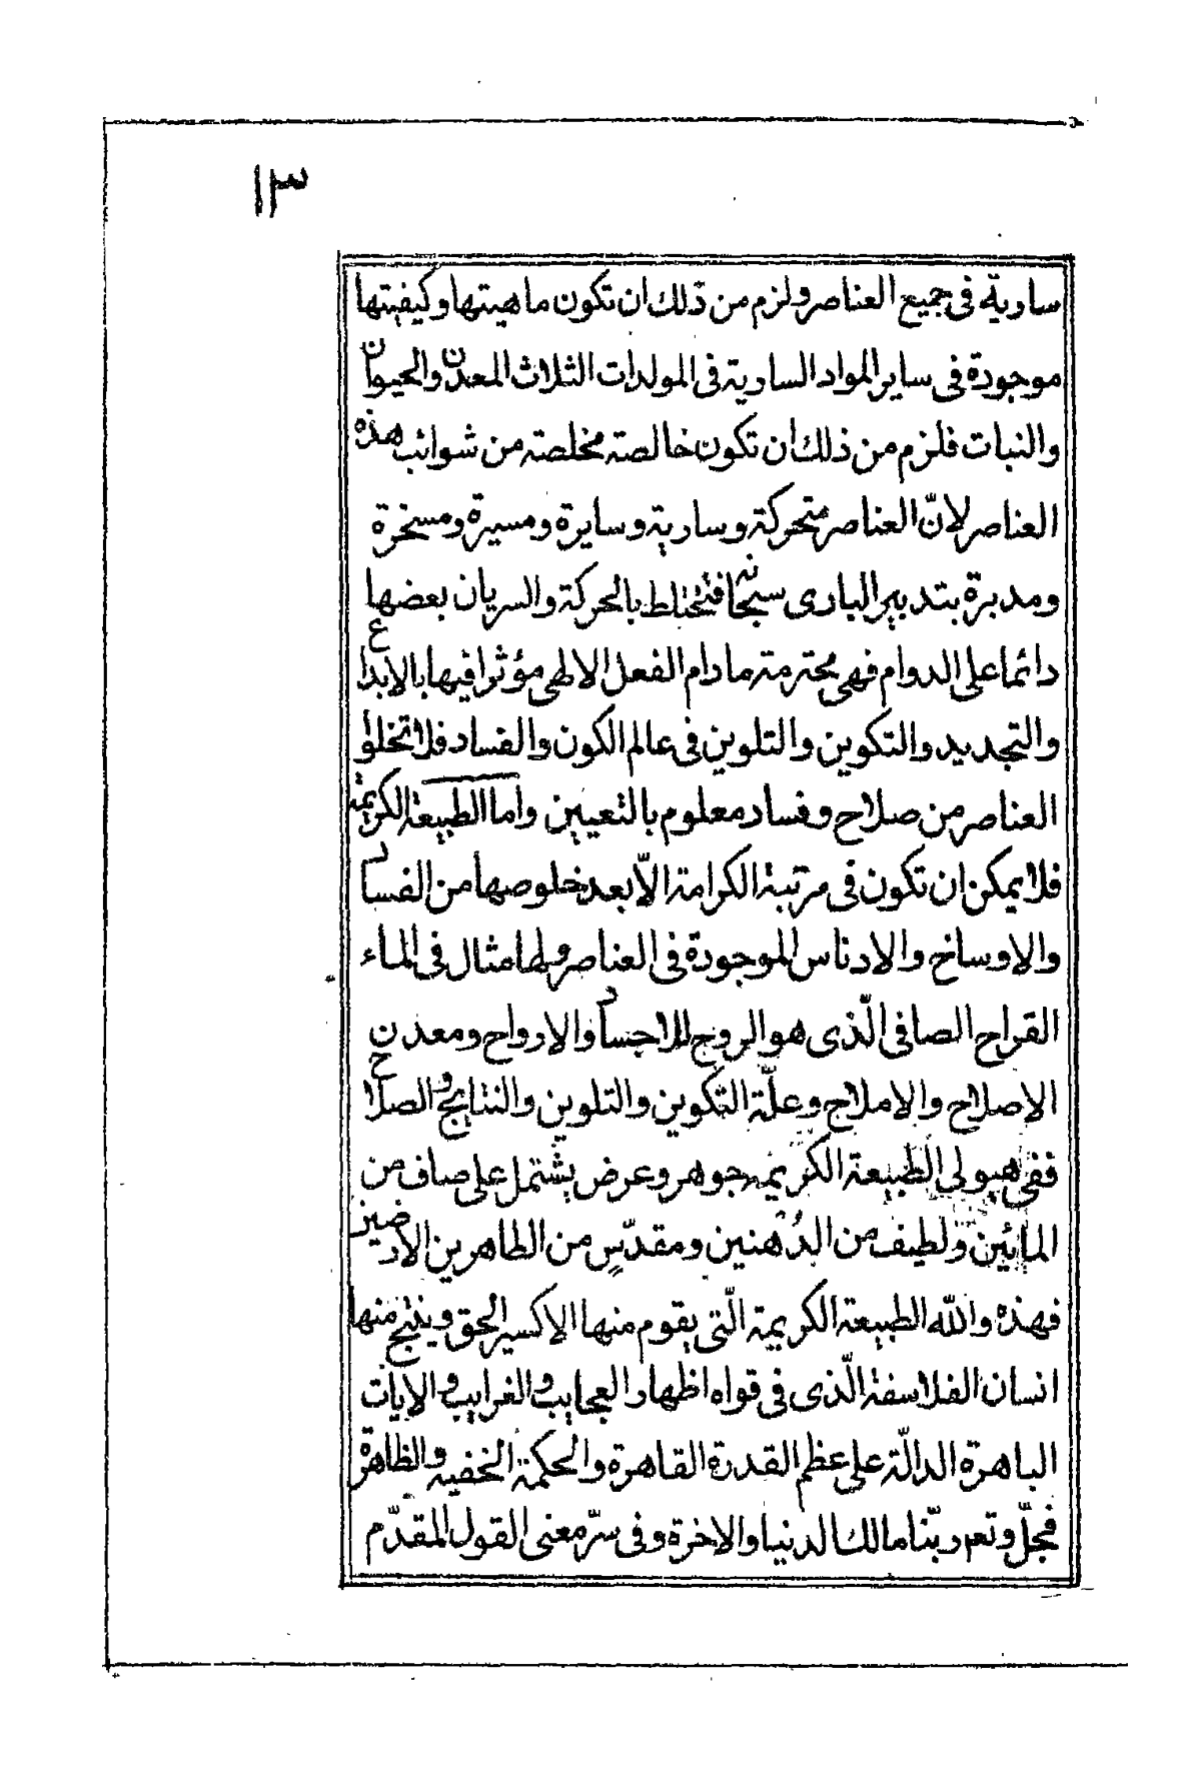 ١٣
سارية فى جميع العناصر ولزم من ذلك ان تكون ماهيتها وكيفيتها
موجودة فى ساير المواد السارية فى المولدات الثلاث المعدن والحيوان
والنبات فلزم من ذلك ان تكون خالصة مخلصة من شوائب هذه
العناصر لانّ العناصر متحركة وسارية وسايرة ومسيرة ومسخرة
ومدبرة بتدبير البارى سبحانه فتختلط بالحركة والسريان بعضها
دائما على الدوام فهى محترمة مادام الفعل الالهى مؤثرا فيها بالابداع
والتجديد والتكوين والتلوين فى عالم الكون والفساد فلا تخلوا
العناصر من صلاح وفساد معلوم بالتعيين واما الطبيعة الكريمة
فلا يمكن ان تكون فى مرتبة الكرامة الاّ بعد خلوصها من الفساد
والاوساخ والادناس الموجودة فى العناصر ولها مثال فى الماء
القراح الصافى الّذى هو الروح للاجساد والارواح ومعدن
الاصلاح والاملاح وعلّة التكوين والتلوين والنتايج والصلاح
ففى هيولى الطبيعة الكريمة جوهر وعرض يشتمل على صاف من
المائين ولطيف من الدُهنين ومقدّسٍ من الطاهرين الارضين
فهذه والله الطبيعة الكريمة الّتى يقوم منها الاكسير الحق وينتج منها
انسان الفلاسفة الّذى فى قواه اظهار العجايب والغرايب والايات
الباهرة الدالّة على عظم القدرة القاهرة والحكمة الخفية والظاهرة
فجلّ وتعم ربّنا مالك الدنيا والاخرة وفى سرّ معنى القول المقدّم